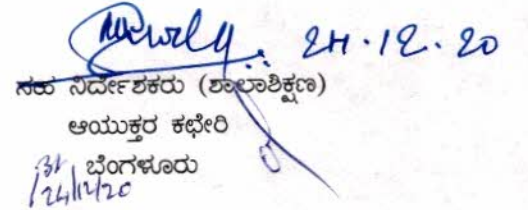 24.12.20
ಸಹ ನಿರ್ದೇಶಕರು (ಶಾಲಾಶಿಕ್ಷಣ)
ಆಯುಕ್ತರ ಕಛೇರಿ
ಬೆಂಗಳೂರು
24/12/20